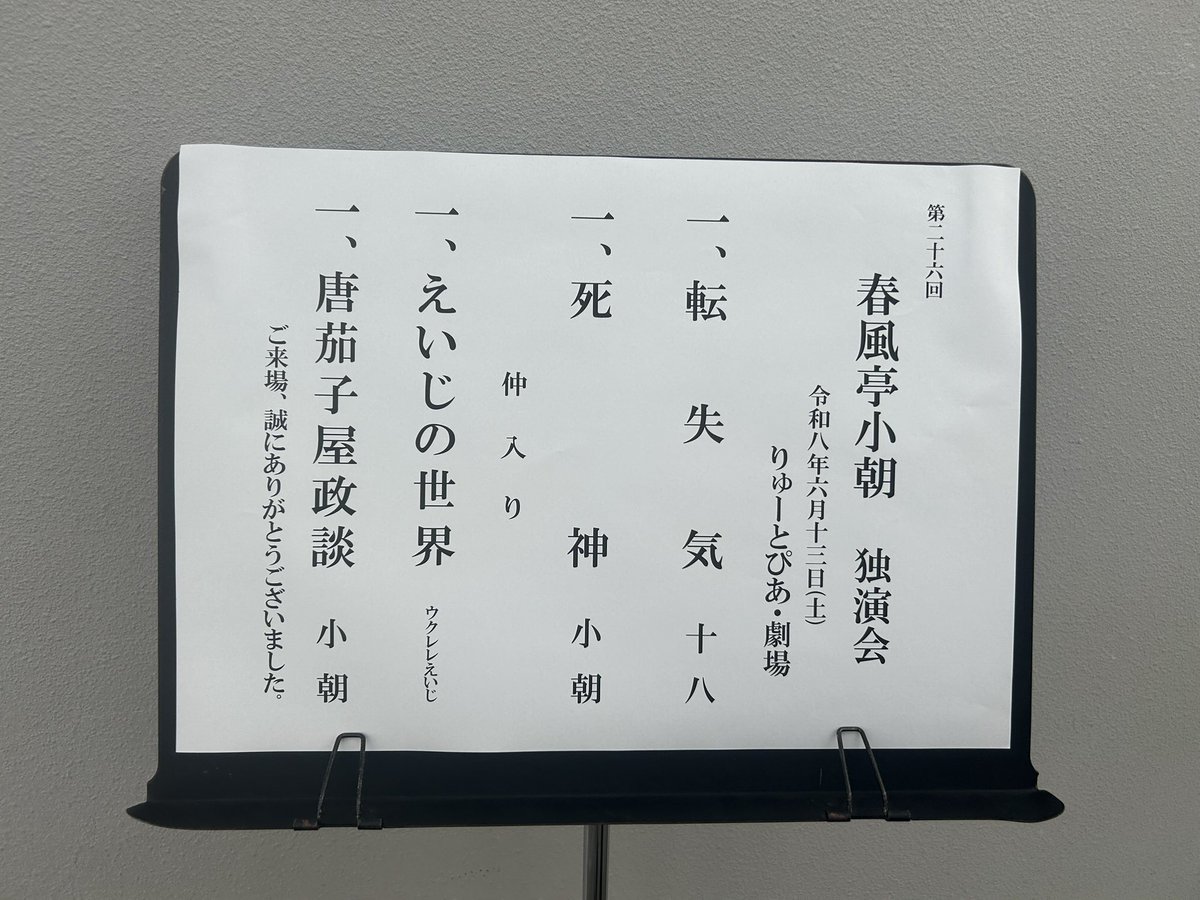 第二十六回
春風亭小朝 独演会
令和八年六月十三日(土)
りゅーとぴあ・劇場
一、転失気 十八
一、死神 小朝
仲入り
一、えいじの世界 ウクレレえいじ
一、唐茄子屋政談 小朝
ご来場、誠にありがとうございました。